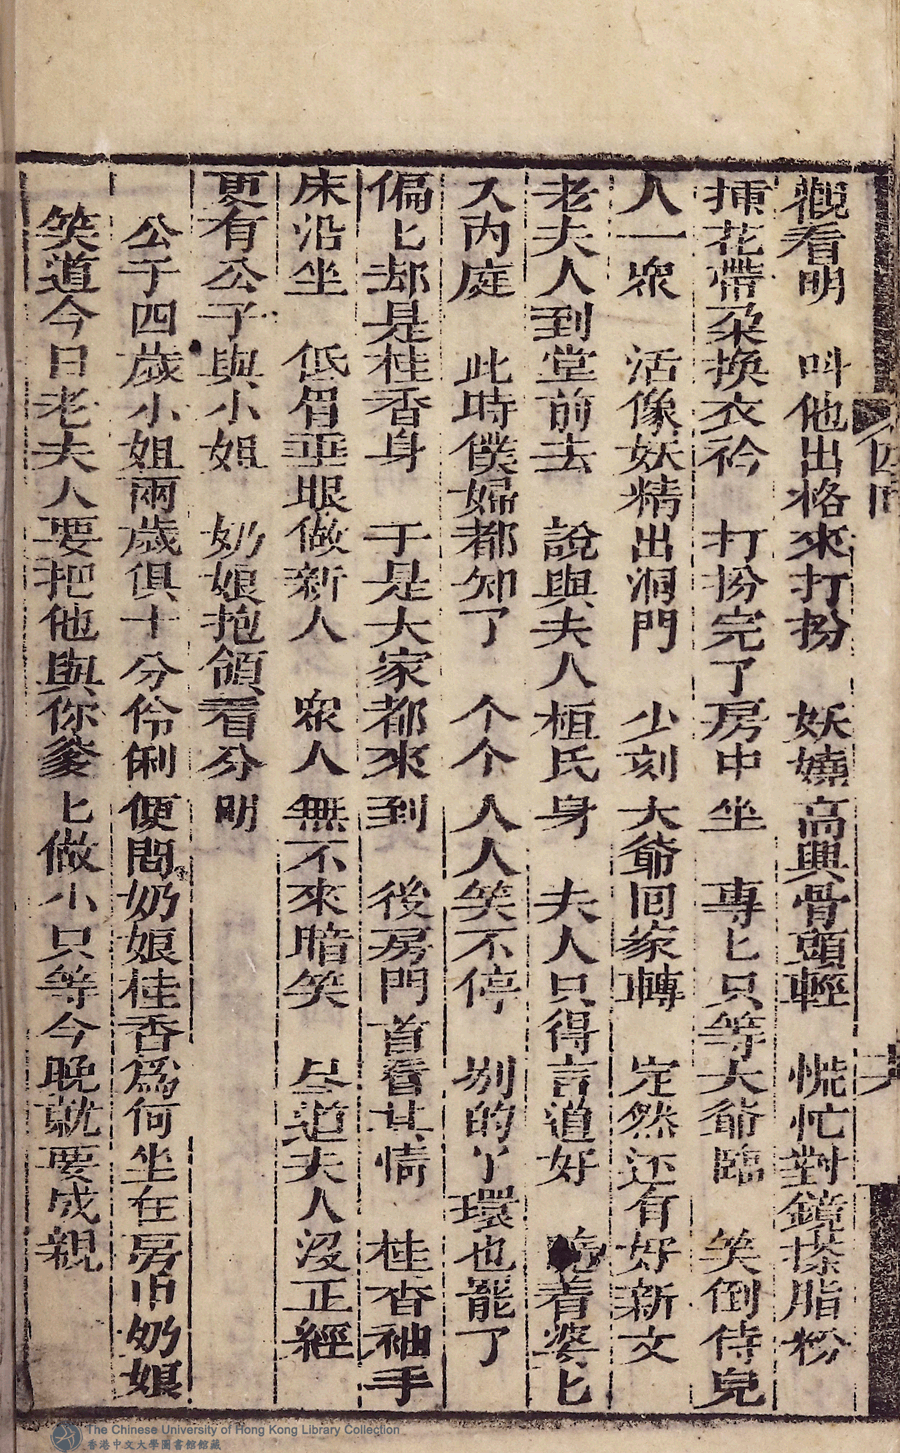 觀看明　叫他出格來打扮　妖嬈高興骨頭輕　慌忙對鏡搽脂粉
揷花帶朶換衣衿　打扮完了房中坐　專匕只等大爺臨　笑倒侍兒
人一眾　活像妖精出洞門　少刻大爺回家轉　定然还有好新文
老夫人到堂前去　說與夫人桓氏身　夫人只得言道好　隨着婆匕
入內庭　此時僕婦都知了　个个人人笑不停　別的丫環也罷了
偏匕却是桂香身　于是大家都來到　後房門首看其情　桂香袖手
床沿坐　低眉垂眼做新人　眾人無不來暗笑　尽道夫人沒正經
更有公子與小姐　奶娘抱領看分明
公子四歲小姐兩歲俱十分伶俐便問奶娘桂香爲何坐在房中奶娘
笑道今日老夫人要把他與你爹匕做小只等今晚就要成親
四回
The Chinese University of Hong Kong Library Collection
香港中文大學圖書館館藏